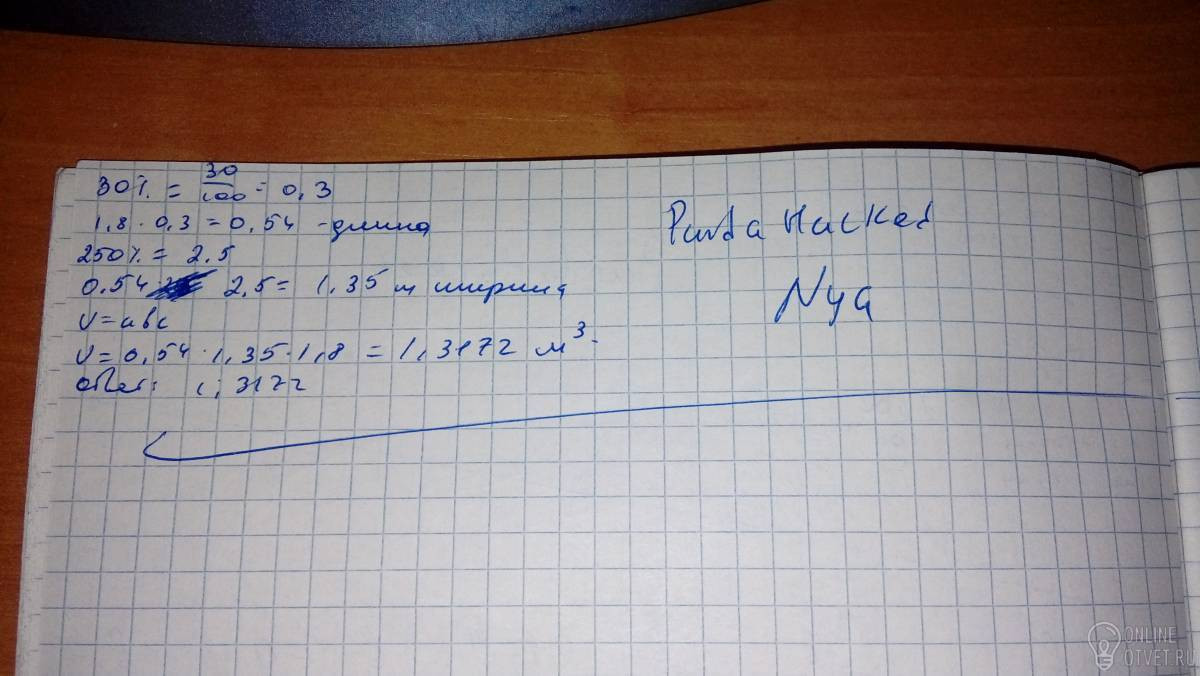 30% = 30/100 = 0,3
1,8 · 0,3 = 0,54 - длина
250% = 2,5
0,54 · 2,5 = 1,35 м ширина
V = abc
V = 0,54 · 1,35 · 1,8 = 1,3172 м³.
ответ: 1,3172
Panda Hacked
Nya
ONLINE
OTVET.RU